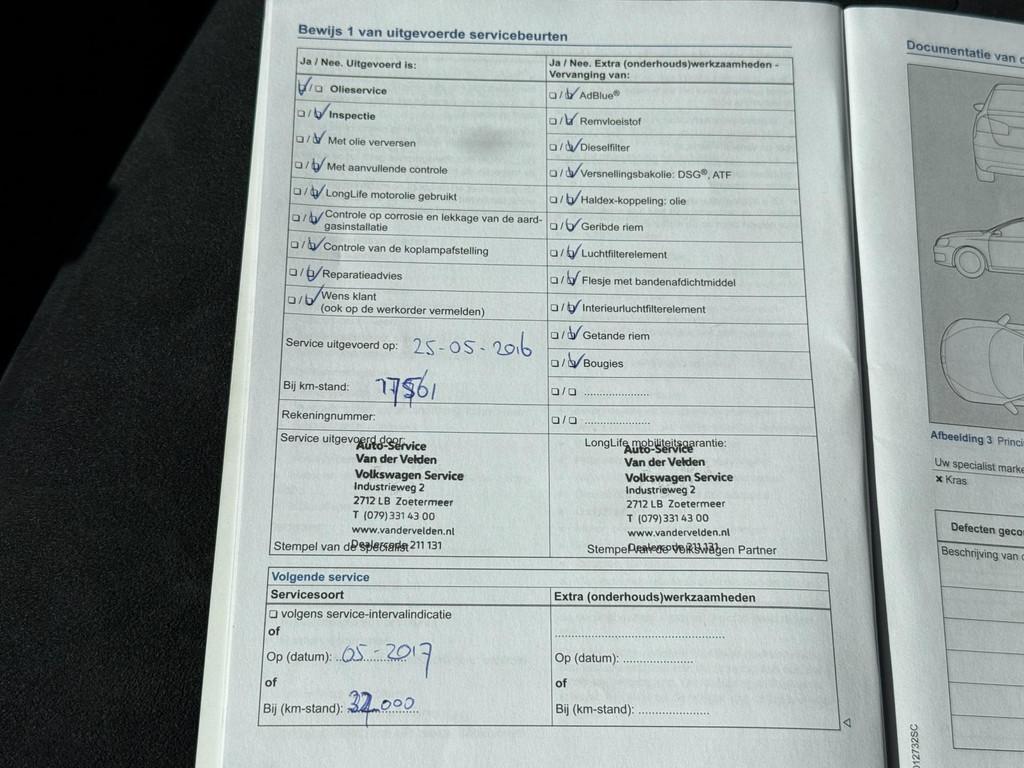 Bewijs 1 van uitgevoerde servicebeurten
Ja / Nee. Uitgevoerd is:
Olieservice
Inspectie
Met olie verversen
Met aanvullende controle
LongLife motorolie gebruikt
Controle op corrosie en lekkage van de aard-
gasinstallatie
Controle van de koplampafstelling
Reparatieadvies
Wens klant
(ook op de werkorder vermelden)
Service uitgevoerd op: 25-05-2016
Bij km-stand:
Rekeningnummer:
Service uitgevoerd door:
Auto-Service
Van der Velden
Volkswagen Service
Industrieweg 2
2712 LB Zoetermeer
T (079) 331 43 00
www.vandervelden.nl
Dealercode 211 131
Stempel van de specialist
Ja / Nee. Extra (onderhouds)werkzaamheden -
Vervanging van:
AdBlue®
Remvloeistof
Dieselfilter
Versnellingsbakolie: DSG®, ATF
Haldex-koppeling: olie
Geribde riem
Luchtfilterelement
Flesje met bandenafdichtmiddel
Interieurluchtfilterelement
Getande riem
Bougies
LongLife mobiliteitsgarantie:
Auto-Service
Van der Velden
Volkswagen Service
Industrieweg 2
2712 LB Zoetermeer
T (079) 331 43 00
www.vandervelden.nl
Dealercode 211 131
Stempel van de Volkswagen Partner
Volgende service
Servicesoort
volgens service-intervalindicatie
of
Op (datum): 05-2017
of
Bij (km-stand): 32.000
Extra (onderhouds)werkzaamheden
Op (datum):
of
Bij (km-stand):
Documentatie van
Afbeelding 3 Princi
Uw specialist marke
× Kras
Defecten geco
Beschrijving van
12732SC